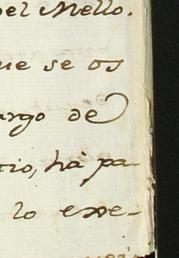 del Mello.
que se os
argo de
cio, há pa-
lo exe-